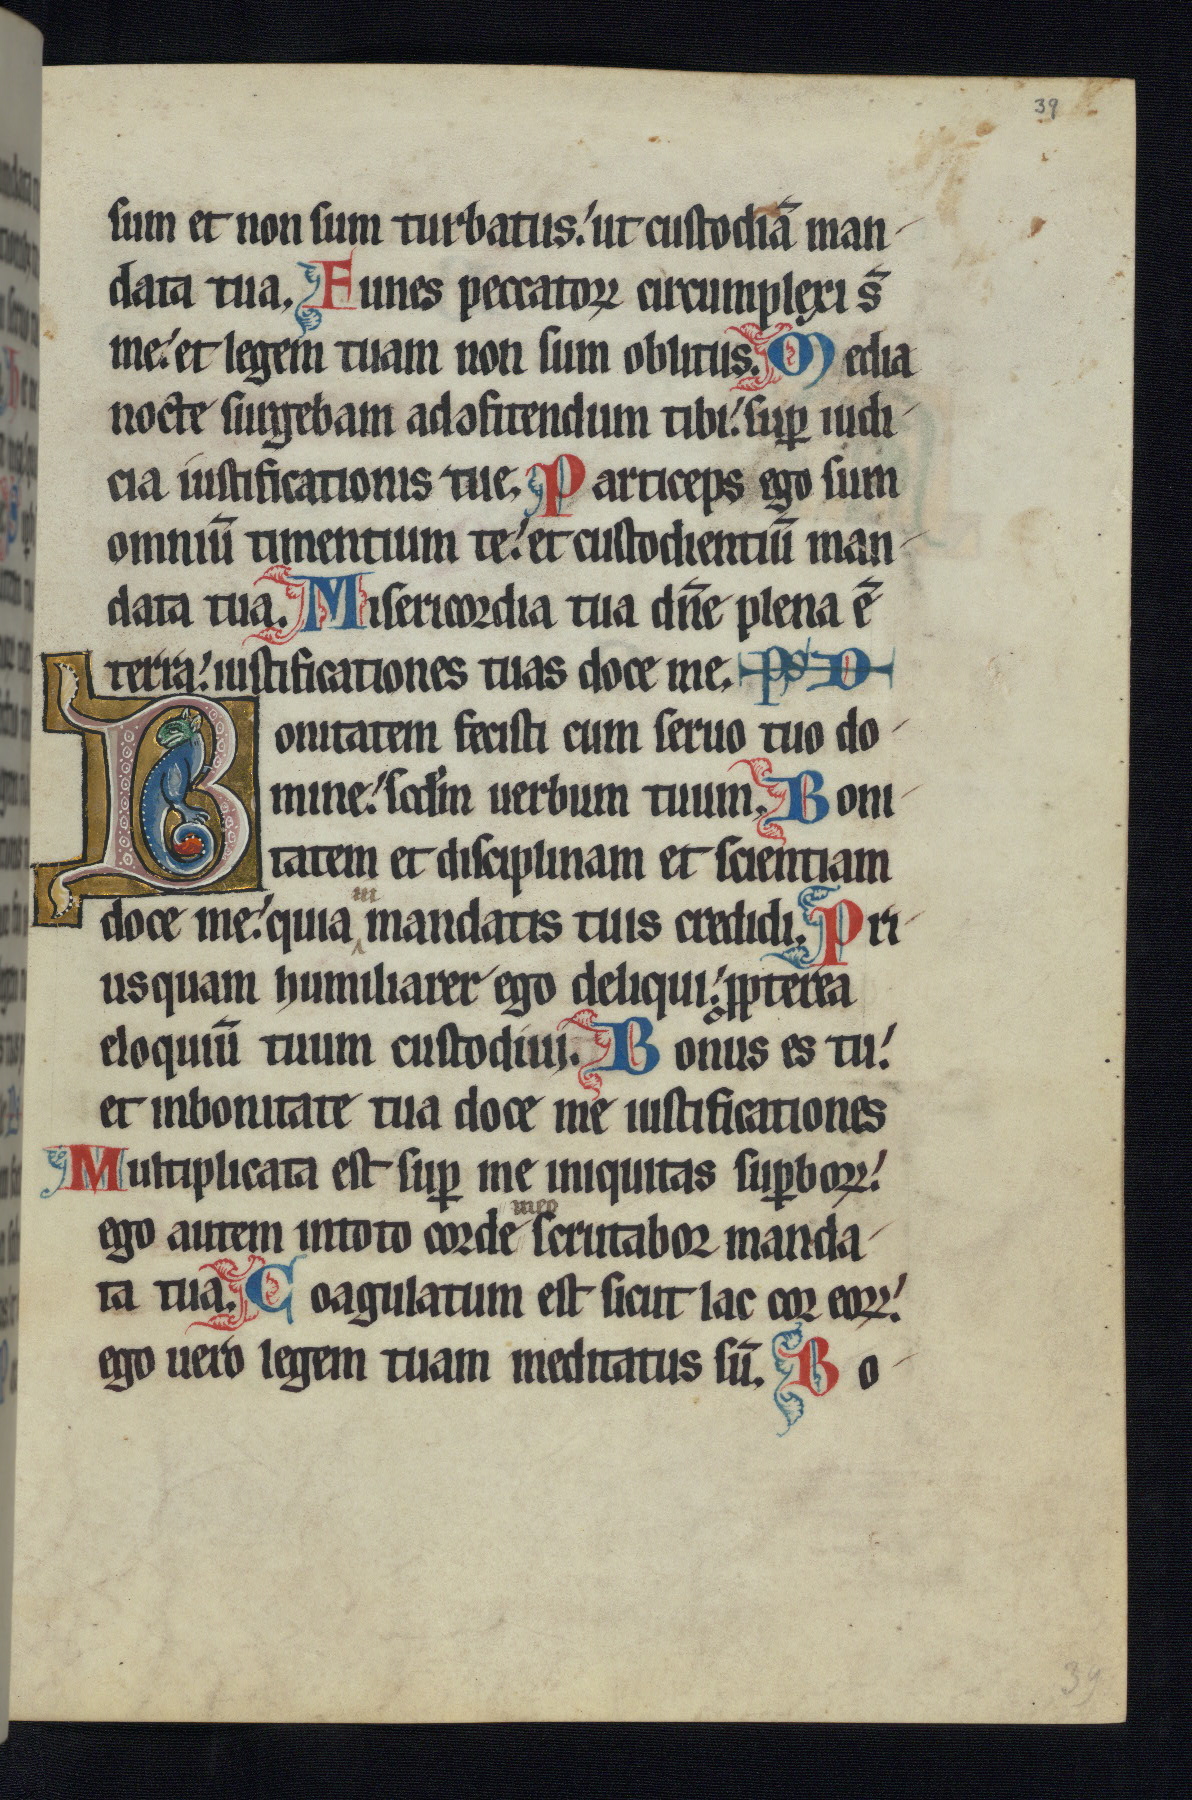 39
sum et non sum turbatus. ut custodiā man-
data tua. Funes peccatoꝝ circumplexi s̄
me. et legem tuam non sum oblitus. Media
nocte surgebam ad ꝯfitendum tibi. suꝑ iudi-
cia iustificationis tue. Particeps ego sum
omniū timentium te. et custodientiū man-
data tua. Misericordia tua dn̄e plena ē
terra. iustificationes tuas doce me. ps̄ D
Bonitatem fecisti cum seruo tuo do-
mine. scd̄m uerbum tuum. Boni-
tatem et disciplinam et scientiam
doce me. quia in mandatis tuis credidi. Pri-
usquam humiliarer ego deliqui. ꝓpterea
eloquiū tuum custodiui. Bonus es tu.
et inbonitate tua doce me iustificationes
Multiplicata est suꝑ me iniquitas suꝑboꝝ.
ego autem intoto corde meo scrutabor manda-
ta tua. Coagulatum est sicut lac cor eoꝝ.
ego uero legem tuam meditatus sū. Bo-
39